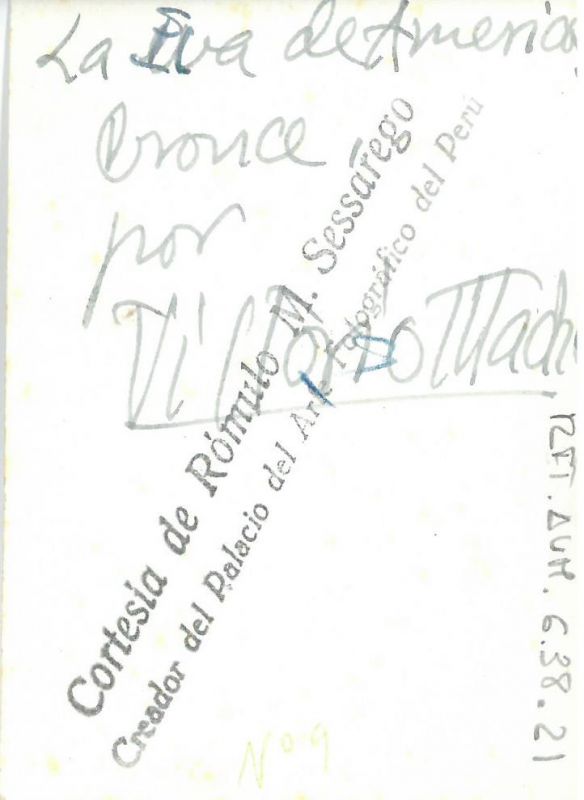 La Eva de America
Bronce
por
Victorio Mach
Cortesia de Rómulo M. Sessárego
Creador del Palacio del Arte Fotográfico del Perú
6.38.21
Nº 9